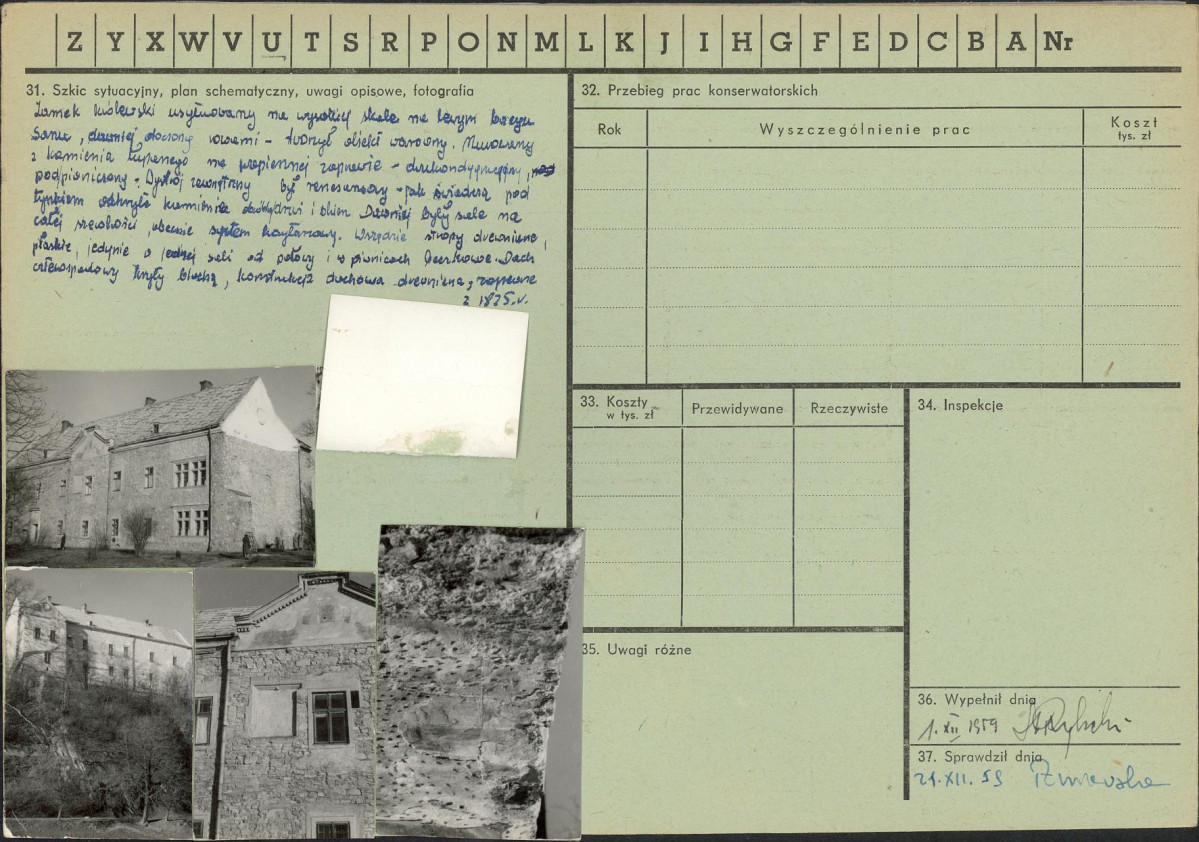 Z Y X W V U T S R P O N M L K J I H G F E D C B A Nr
31. Szkic sytuacyjny, plan schematyczny, uwagi opisowe, fotografia
Zamek królewski usytuowany na wysokiej skale na lewym brzegu
Sanu, dawniej otoczony rowami – tworzył obiekt warowny. Murowany
z kamienia łupanego na wapiennej zaprawie – dwukondygnacyjny,
podpiwniczony. Wystrój zewnętrzny był renesansowy – jak świadczą pod
tynkiem odkryte kamienie drzwi i okien. Dawniej były sale na
całej szerokości, obecnie system korytarzowy. Wszędzie stropy drewniane,
płaskie, jedynie w jednej sali od północy i w piwnicach beczkowe. Dach
czterospadowy kryty blachą, konstrukcja dachowa drewniana, zapewne
z 1875 r.
32. Przebieg prac konserwatorskich
Rok
Wyszczególnienie prac
Koszt
tys. zł
33. Koszty
w tys. zł
Przewidywane
Rzeczywiste
34. Inspekcje
35. Uwagi różne
36. Wypełnił dnia
1. XII 1959
37. Sprawdził dnia
21. XII. 59